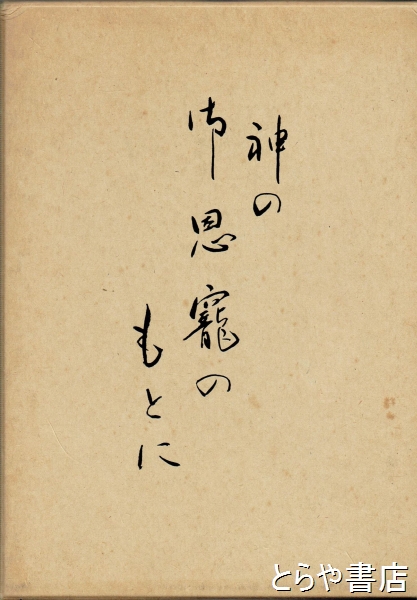 神の
御恩寵の
もとに
とらや書店